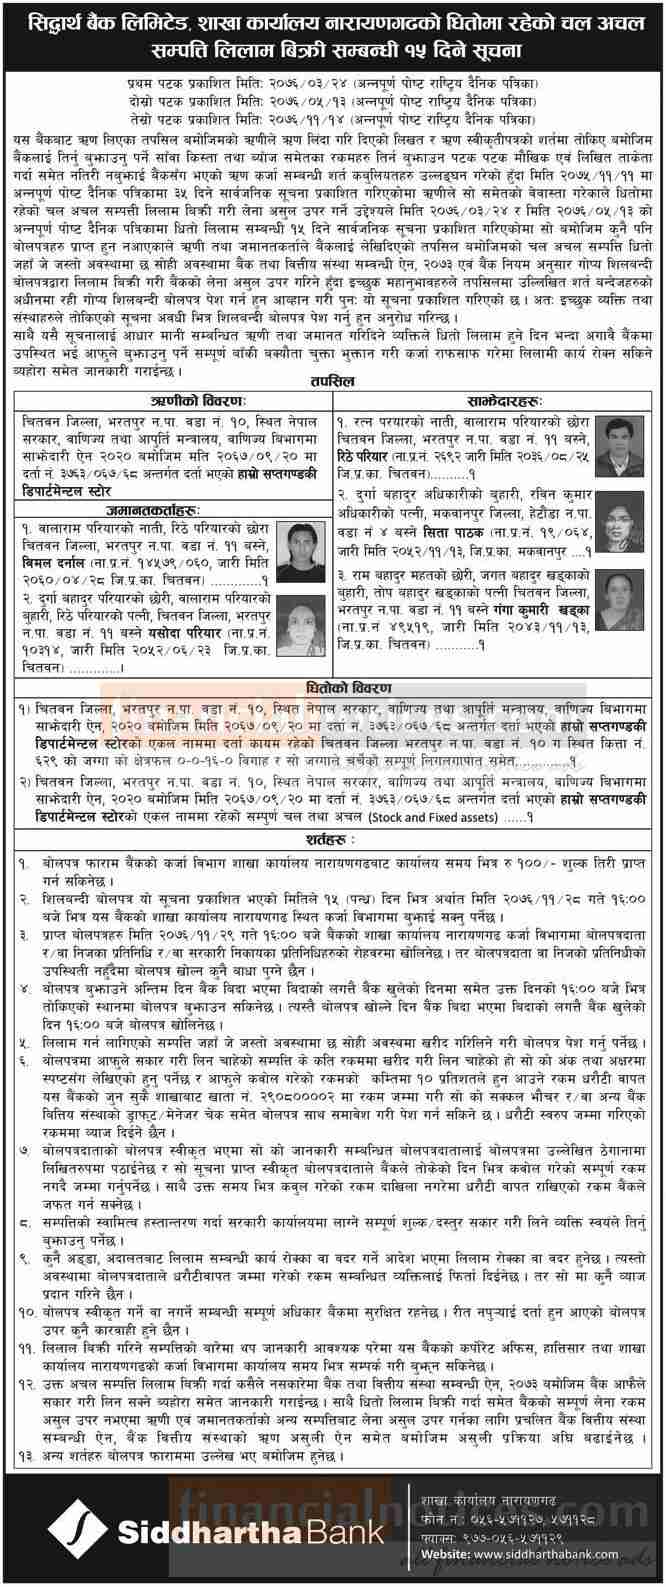 सिद्धार्थ बैंक लिमिटेड, शाखा कार्यालय नारायणगढको धितोमा रहेको चल अचल
सम्पत्ति लिलाम बिक्री सम्बन्धी १५ दिने सूचना
प्रथम पटक प्रकाशित मिति: २०७६/०३/२४ (अन्नपूर्ण पोष्ट राष्ट्रिय दैनिक पत्रिका)
दोस्रो पटक प्रकाशित मिति: २०७६/०५/१३ (अन्नपूर्ण पोष्ट राष्ट्रिय दैनिक पत्रिका)
तेस्रो पटक प्रकाशित मिति: २०७६/११/१४ (अन्नपूर्ण पोष्ट राष्ट्रिय दैनिक पत्रिका)
यस बैंकबाट ऋण लिएका तपसिल बमोजिमको ऋणीले ऋण लिंदा गरि दिएको लिखत र ऋण स्वीकृतीपत्रको शर्तमा तोकिए बमोजिम
बैंकलाई तिर्नु बुझाउनु पर्ने साँवा किस्ता तथा ब्याज समेतका रकमहरु तिर्न बुझाउन पटक पटक मौखिक एवं लिखित ताकेता
गर्दा समेत नतिरी नबुझाई बैंकसंग भएको ऋण कर्जा सम्बन्धी शर्त कबुलियतहरु उल्लङ्घन गरेको हुँदा मिति २०७५/११/११ मा
अन्नपूर्ण पोष्ट दैनिक पत्रिकामा ३५ दिने सार्वजनिक सूचना प्रकाशित गरिएकोमा ऋणीले सो समेतको बेवास्ता गरेकाले धितोमा
रहेको चल अचल सम्पत्ती लिलाम बिक्री गरी लेना असुल उपर गर्ने उद्देश्यले मिति २०७६/०३/२४ र मिति २०७६/०५/१३ को
अन्नपूर्ण पोष्ट दैनिक पत्रिकामा धितो लिलाम सम्बन्धी १५ दिने सार्वजनिक सूचना प्रकाशित गरिएकोमा सो बमोजिम कुनै पनि
बोलपत्रहरु प्राप्त हुन नआएकाले ऋणी तथा जमानतकर्ताले बैंकलाई लेखिदिएको तपसिल बमोजिमको चल अचल सम्पत्ति धितो
जहाँ जे जस्तो अवस्थामा छ सोही अवस्थामा बैंक तथा वित्तीय संस्था सम्बन्धी ऐन, २०७३ एवं बैंक नियम अनुसार गोप्य शिलबन्दी
बोलपत्रद्वारा लिलाम बिक्री गरी बैंकको लेना असुल उपर गरिने हुँदा इच्छुक महानुभावहरुले तपसिलमा उल्लिखित शर्त बन्देजहरुको
अधीनमा रही गोप्य शिलबन्दी बोलपत्र पेश गर्न हुन आव्हान गरी पुन: यो सूचना प्रकाशित गरिएको छ । अत: इच्छुक व्यक्ति तथा
संस्थाहरुले तोकिएको सूचना अवधी भित्र शिलबन्दी बोलपत्र पेश गर्नु हुन अनुरोध गरिन्छ ।
साथै यसै सूचनालाई आधार मानी सम्बन्धित ऋणी तथा जमानत गरिदिने व्यक्तिले धितो लिलाम हुने दिन भन्दा अगावै बैंकमा
उपस्थित भई आफुले बुझाउनु पर्ने सम्पूर्ण बाँकी बक्यौता चुक्ता भुक्तान गरी कर्जा राफसाफ गरेमा लिलामी कार्य रोक्न सकिने
व्यहोरा समेत जानकारी गराईन्छ ।
तपसिल
ऋणीको विवरण:
चितवन जिल्ला, भरतपुर न.पा. वडा नं. १०, स्थित नेपाल
सरकार, वाणिज्य तथा आपुर्ति मन्त्रालय, वाणिज्य विभागमा
साझेदारी ऐन २०२० बमोजिम मति २०६७/०९/२० मा
दर्ता नं. ३७६३/०६७/६८ अन्तर्गत दर्ता भएको हाम्रो सप्तगण्डकी
डिपार्टमेन्टल स्टोर
जमानतकर्ताहरु:
१. वालाराम परियारको नाती, रिठे परियारको छोरा
चितवन जिल्ला, भरतपुर न.पा. वडा नं. ११ बस्ने,
बिमल दर्नाल (ना.प्र.नं. १४५७९/०६०, जारी मिति
२०६०/०४/२८ जि.प्र.का. चितवन) ............१
२. दुर्गा बहादुर परियारको छोरी, वालाराम परियारको
बुहारी, रिठे परियारको पत्नी, चितवन जिल्ला, भरतपुर
न.पा. वडा नं. ११ बस्ने यसोदा परियार (ना.प्र.नं.
१०३१४, जारी मिति २०५२/०६/२३ जि.प्र.का.
चितवन) ............।
साझेदारहरु:
१. रत्न परयारको नाती, वालाराम परियारको छोरा
चितवन जिल्ला, भरतपुर न.पा. वडा नं. ११ बस्ने,
रिठे परियार (ना.प्र.नं. २६९२ जारी मिति २०३६/०८/२५
जि.प्र.का. चितवन)..........१
२. दुर्गा बहादुर अधिकारीको बुहारी, रविन कुमार
अधिकारीको पत्नी, मकवानपुर जिल्ला, हेटौंडा न.पा.
वडा नं ४ बस्ने सिता पाठक (ना.प्र.नं. १९/०६४,
जारी मिति २०५२/११/१३, जि.प्र.का. मकवानपुर ....१
३. राम बहादुर महतको छोरी, जगत बहादुर खड्काको
बुहारी, तोप बहादुर खड्काको पत्नी चितवन जिल्ला,
भरतपुर न.पा. वडा नं. ११ बस्ने गंगा कुमारी खड्का
(ना.प्र.नं ४९५१९, जारी मिति २०४३/११/१३,
जि.प्र.का. चितवन) ..........१
धितोको विवरण
१) चितवन जिल्ला, भरतपुर न.पा. वडा नं. १०, स्थित नेपाल सरकार, वाणिज्य तथा आपुर्ति मन्त्रालय, वाणिज्य विभागमा
साझेदारी ऐन, २०२० बमोजिम मिति २०६७/०९/२० मा दर्ता नं. ३७६३/०६७/६८ अन्तर्गत दर्ता भएको हाम्रो सप्तगण्डकी
डिपार्टमेन्टल स्टोरको एकल नाममा दर्ता कायम रहेको चितवन जिल्ला भरतपुर न.पा. वडा नं. १० ग स्थित कित्ता नं.
६२९ को जग्गा को क्षेत्रफल ०-०-१६-० विगाह र सो जग्गाले चर्चेको सम्पूर्ण लिगलगापात समेत............१
२) चितवन जिल्ला, भरतपुर न.पा. वडा नं. १०, स्थित नेपाल सरकार, वाणिज्य तथा आपुर्ति मन्त्रालय, वाणिज्य विभागमा
साझेदारी ऐन, २०२० बमोजिम मिति २०६७/०९/२० मा दर्ता नं. ३७६३/०६७/६८ अन्तर्गत दर्ता भएको हाम्रो सप्तगण्डकी
डिपार्टमेन्टल स्टोरको एकल नाममा रहेको सम्पुर्ण चल तथा अचल (Stock and Fixed assets) ......१
शर्तहरु :
१. बोलपत्र फाराम बैंकको कर्जा विभाग शाखा कार्यालय नारायणगढबाट कार्यालय समय भित्र रु १००/- शुल्क तिरी प्राप्त
गर्न सकिनेछ ।
२. शिलबन्दी बोलपत्र यो सूचना प्रकाशित भएको मितिले १५ (पन्ध्र) दिन भित्र अर्थात मिति २०७६/११/२८ गते १६:००
बजे भित्र यस बैंकको शाखा कार्यालय नारायणगढ स्थित कर्जा विभागमा बुझाई सक्नु पर्नेछ ।
३. प्राप्त बोलपत्रहरु मिति २०७६/११/२९ गते १६:०० बजे बैंकको शाखा कार्यालय नारायणगढ कर्जा विभागमा बोलपत्रदाता
र/वा निजका प्रतिनिधि र/वा सरकारी निकायका प्रतिनिधिहरुको रोहवरमा खोलिनेछ । तर बोलपत्रदाता वा निजको प्रतिनिधीको
उपस्थिती नहुँदैमा बोलपत्र खोल्न कुनै बाधा पुग्ने छैन ।
४. बोलपत्र बुझाउने अन्तिम दिन बैंक बिदा भएमा बिदाको लगत्तै बैंक खुलेको दिनमा समेत उक्त दिनको १६:०० बजे भित्र
तोकिएको स्थानमा बोलपत्र बुझाउन सकिनेछ । त्यस्तै बोलपत्र खोल्ने दिन बैंक बिदा भएमा बिदाको लगत्तै बैंक खुलेको
दिन १६:०० बजे बोलपत्र खोलिनेछ ।
५. लिलाम गर्न लागिएको सम्पत्ति जहाँ जे जस्तो अवस्थामा छ सोही अवस्थमा खरीद गरिलिने गरी बोलपत्र पेश गर्नु पर्नेछ ।
६. बोलपत्रमा आफुले सकार गरी लिन चाहेको सम्पत्ति के कति रकममा खरीद गरी लिन चाहेको हो सो को अंक तथा अक्षरमा
स्पष्टसंग लेखिएको हुनु पर्नेछ र आफुले कवोल गरेको रकमको कम्तिमा १० प्रतिशतले हुन आउने रकम धरौटी वापत
यस बैंकको जुन सुकै शाखाबाट खाता नं. २९०८००००२ मा रकम जम्मा गरी सो को सक्कल भौचर र/वा अन्य बैंक
वित्तिय संस्थाको ड्राफ्ट/मेनेजर चेक समेत बोलपत्र साथ समावेश गरी पेश गर्न सकिने छ । धरौटी स्वरुप जम्मा गरिएको
रकममा व्याज दिईने छैन ।
७. बोलपत्रदाताको बोलपत्र स्वीकृत भएमा सो को जानकारी सम्बन्धित बोलपत्रदातालाई बोलपत्रमा उल्लेखित ठेगानामा
लिखितरुपमा पठाईनेछ र सो सूचना प्राप्त स्वीकृत बोलपत्रदाताले बैंकले तोकेको दिन भित्र कवोल गरेको सम्पूर्ण रकम
नगदै जम्मा गर्नुपर्नेछ । साथै उक्त समय भित्र कवुल गरेको रकम दाखिला नगरेमा धरौटी वापत राखिएको रकम बैंकले
जफत गर्न सक्नेछ ।
८. सम्पत्तिको स्वामित्व हस्तान्तरण गर्दा सरकारी कार्यालयमा लाग्ने सम्पूर्ण शुल्क/दस्तुर सकार गरी लिने व्यक्ति स्वयंले तिर्नु
बुझाउनु पर्नेछ ।
९. कुनै अड्डा, अदालतबाट लिलाम सम्बन्धी कार्य रोक्का वा वदर गर्ने आदेश भएमा लिलाम रोक्का वा वदर हुनेछ । त्यस्तो
अवस्थामा बोलपत्रदाताले धरौटीवापत जम्मा गरेको रकम सम्बन्धित व्यक्तिलाई फिर्ता दिईनेछ । तर सो मा कुनै व्याज
प्रदान गरिने छैन ।
१०. बोलपत्र स्वीकृत गर्ने वा नगर्ने सम्बन्धी सम्पूर्ण अधिकार बैंकमा सुरक्षित रहनेछ । रीत नपुर्‍याई दर्ता हुन आएको बोलपत्र
उपर कुनै कारवाही हुने छैन ।
११. लिलाल बिक्री गरिने सम्पत्तिको वारेमा थप जानकारी आवश्यक परेमा यस बैंकको कर्पोरेट अफिस, हात्तिसार तथा शाखा
कार्यालय नारायणगढको कर्जा विभागमा कार्यालय समय भित्र सम्पर्क गरी बुझ्न सकिनेछ ।
१२. उक्त अचल सम्पत्ति लिलाम बिक्री गर्दा कसैले नसकारेमा बैंक तथा वित्तिय संस्था सम्बन्धी ऐन, २०७३ बमोजिम बैंक आफैले
सकार गरी लिन सक्ने व्यहोरा समेत जानकारी गराईन्छ । साथै धितो लिलाम बिक्री गर्दा समेत बैंकको सम्पूर्ण लेना रकम
असुल उपर नभएमा ऋणी एवं जमानतकर्ताको अन्य सम्पत्तिबाट लेना असुल उपर गर्नका लागि प्रचलित बैंक वित्तीय संस्था
सम्बन्धी ऐन, बैंक वित्तीय संस्थाको ऋण असुली ऐन समेत बमोजिम असुली प्रक्रिया अघि बढाईनेछ ।
१३. अन्य शर्तहरु बोलपत्र फाराममा उल्लेख भए बमोजिम हुनेछ ।
Siddhartha Bank
शाखा कार्यालय नारायणगढ
फोन नं.: ०५६-५७११२७, ५७११२८
फ्याक्स: ९७७-०५६-५७११२९
Website: www.siddharthabank.com
financialnotices.com
all financial notices ads